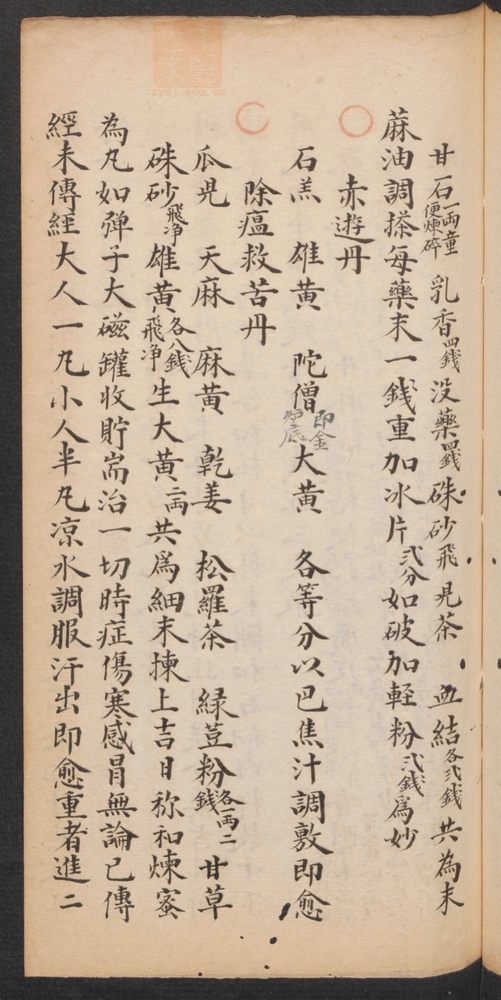 甘石一兩童便煉碎 乳香四錢 没藥四錢 硃砂飛 児茶 血結各弍錢 共為末
蔴油調搽每藥末一錢重加冰片弍分如破加軽粉弍錢爲妙
赤遊丹
石羔 雄黄 陀僧即金罏底 大黄 各等分以巴焦汁調敷即愈
除瘟救苦丹
瓜児 天麻 麻黄 乾姜 松羅茶 緑荳粉各一兩二錢 甘草
硃砂飛净 雄黄飛净各八錢 生大黄二兩 共爲細末揀上吉日称和煉蜜
為丸如弹子大磁罐收貯耑治一切時症傷寒感冒無論已傳
經未傳経大人一丸小人半丸凉水調服汗出即愈重者進二
zynj.com.cn